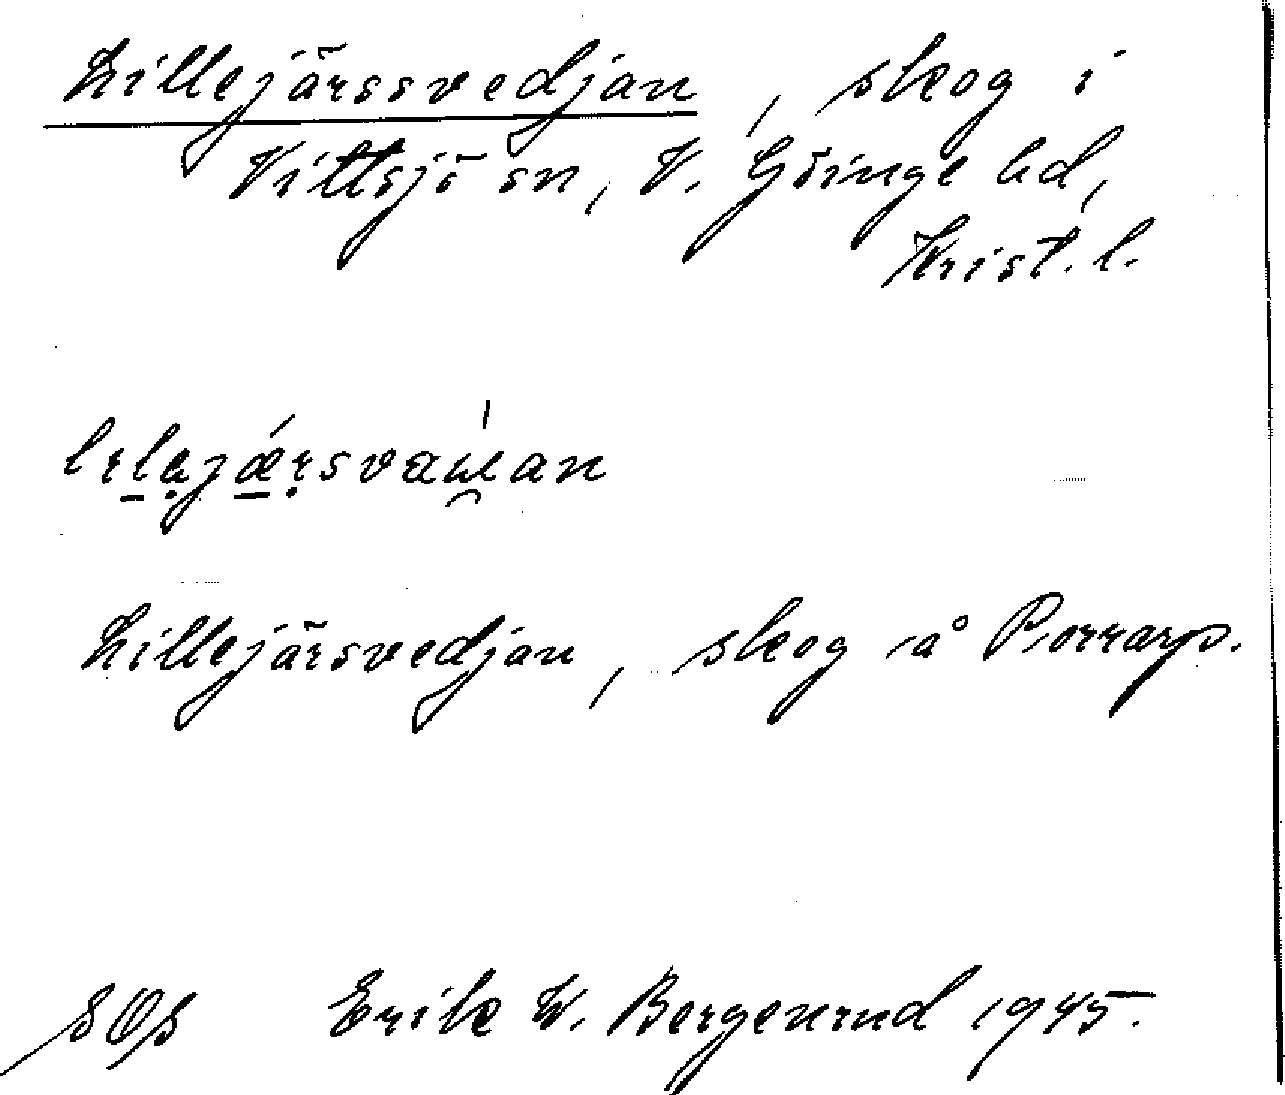 Lillejärssvedjan, skog i
Vittsjö sn, V. Göinge hd,
Krist. l.
Lillejärsvedjan, skog å Porrarp.
Erik W. Bergenrud 1945.